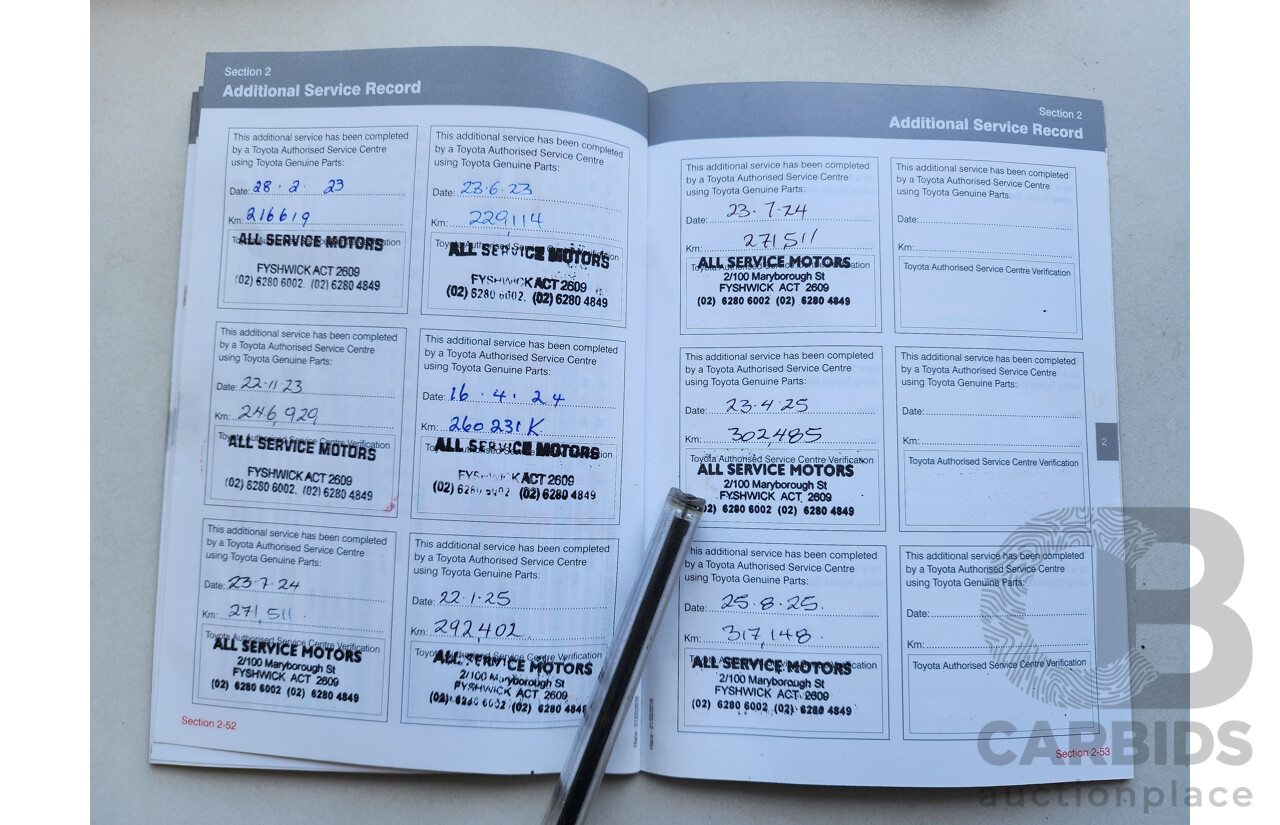 Section 2
Additional Service Record
This additional service has been completed
by a Toyota Authorised Service Centre
using Toyota Genuine Parts:
Date: 28 . 2 . 23
Km: 216619
ALL SERVICE MOTORS
FYSHWICK ACT 2609
(02) 6280 6002. (02) 6280 4849
This additional service has been completed
by a Toyota Authorised Service Centre
using Toyota Genuine Parts:
Date: 23.6.23
Km: 229,114
ALL SERVICE MOTORS
FYSHWICK ACT 2609
(02) 6280 6002. (02) 6280 4849
This additional service has been completed
by a Toyota Authorised Service Centre
using Toyota Genuine Parts:
Date: 22.11.23
Km: 246,929
Toyota Authorised Service Centre Verification
ALL SERVICE MOTORS
FYSHWICK ACT 2609
(02) 6280 6002. (02) 6280 4849
This additional service has been completed
by a Toyota Authorised Service Centre
using Toyota Genuine Parts:
Date: 16 . 4 . 24
Km: 260 231 K
ALL SERVICE MOTORS
ACT 2609
(02) 6280 4849
This additional service has been completed
by a Toyota Authorised Service Centre
using Toyota Genuine Parts:
Date: 23.7.24
Km: 271,511.
Toyota Authorised Service Centre Verification
ALL SERVICE MOTORS
2/100 Maryborough St
FYSHWICK ACT 2609
(02) 6280 6002 (02) 6280 4849
This additional service has been completed
by a Toyota Authorised Service Centre
using Toyota Genuine Parts:
Date: 22.1.25
Km: 292,402
ALL SERVICE MOTORS
2/100 Maryborough St
FYSHWICK ACT 2609
(02) 6280 6002 (02) 6280 4849
Section 2-52
Section 2
Additional Service Record
This additional service has been completed
by a Toyota Authorised Service Centre
using Toyota Genuine Parts:
Date: 23.7.24
Km: 271,511
ALL SERVICE MOTORS
2/100 Maryborough St
FYSHWICK ACT 2609
(02) 6280 6002 (02) 6280 4849
This additional service has been completed
by a Toyota Authorised Service Centre
using Toyota Genuine Parts:
Date:
Km:
Toyota Authorised Service Centre Verification
This additional service has been completed
by a Toyota Authorised Service Centre
using Toyota Genuine Parts:
Date: 23.4.25
Km: 302,485
Toyota Authorised Service Centre Verification
ALL SERVICE MOTORS
2/100 Maryborough St
FYSHWICK ACT 2609
02) 6280 6002 (02) 6280 4849
This additional service has been completed
by a Toyota Authorised Service Centre
using Toyota Genuine Parts:
Date:
Km:
Toyota Authorised Service Centre Verification
2
his additional service has been completed
by a Toyota Authorised Service Centre
using Toyota Genuine Parts:
Date: 25.8.25.
Km: 317,148.
ALL SERVICE MOTORS
2/100 Maryborough St
FYSHWICK ACT 2609
(02) 6280 6002 (02) 6280 4849
This additional service has been completed
by a Toyota Authorised Service Centre
using Toyota Genuine Parts:
Date:
Km:
Toyota Authorised Service Centre Verification
Section 2-53
CARBIDS
auctionplace